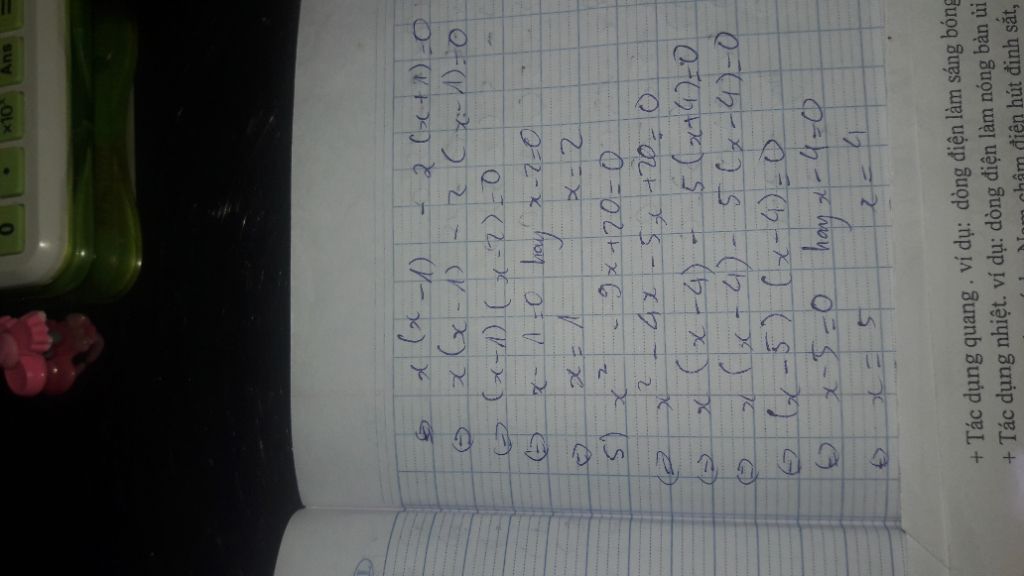 ⇔ x(x-1) - 2(x+1)=0
⇔ x(x-1) - 2(x-1)=0
⇔ (x-1)(x-2)=0
⇔ x-1=0 hay x-2=0
⇔ x=1 x=2
5) x² - 9x+20=0
⇔ x² - 4x - 5x+20=0
⇔ x(x-4) - 5(x+4)=0
⇔ x(x-4) - 5(x-4)=0
⇔ (x-5)(x-4)=0
⇔ x-5=0 hay x-4=0
⇔ x=5 x=4
+ Tác dụng quang . ví dụ: dòng điện làm sáng bóng
+ Tác dụng nhiệt. ví dụ: dòng điện làm nóng bàn ủi
Nam châm điện hút đinh sắt,
0 • ×10ˣ Ans =